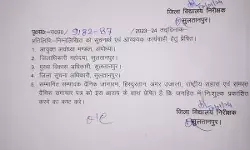 जिला विद्यालय निरीक्षक
सुलतानपुर।
/2023-24 तद्दिनांक-
प्रतिलिपि-निम्नलिखित को सूचनार्थ एवं आवश्यक कार्यवाही हेतु प्रेषित।
1. आयुक्त अयोध्या मण्डल, अयोध्या।
2. जिलाधिकारी महोदय, सुलतानपुर।
3. मुख्य विकास अधिकारी, सुलतानपुर।
4. जिला सूचना अधिकारी, सुलतानपुर।
5. सम्पादक दैनिक जागरण, हिन्दुस्तान अमर उजाला, राष्ट्रीय सहारा एवं समस्त
दैनिक समाचार पत्र को इस आशय से प्रेषित है कि जनहित में निःशुल्क प्रकाशित
करने का कष्ट करें।
जिला विद्यालय निरीक्षक
सुलतानपुर।